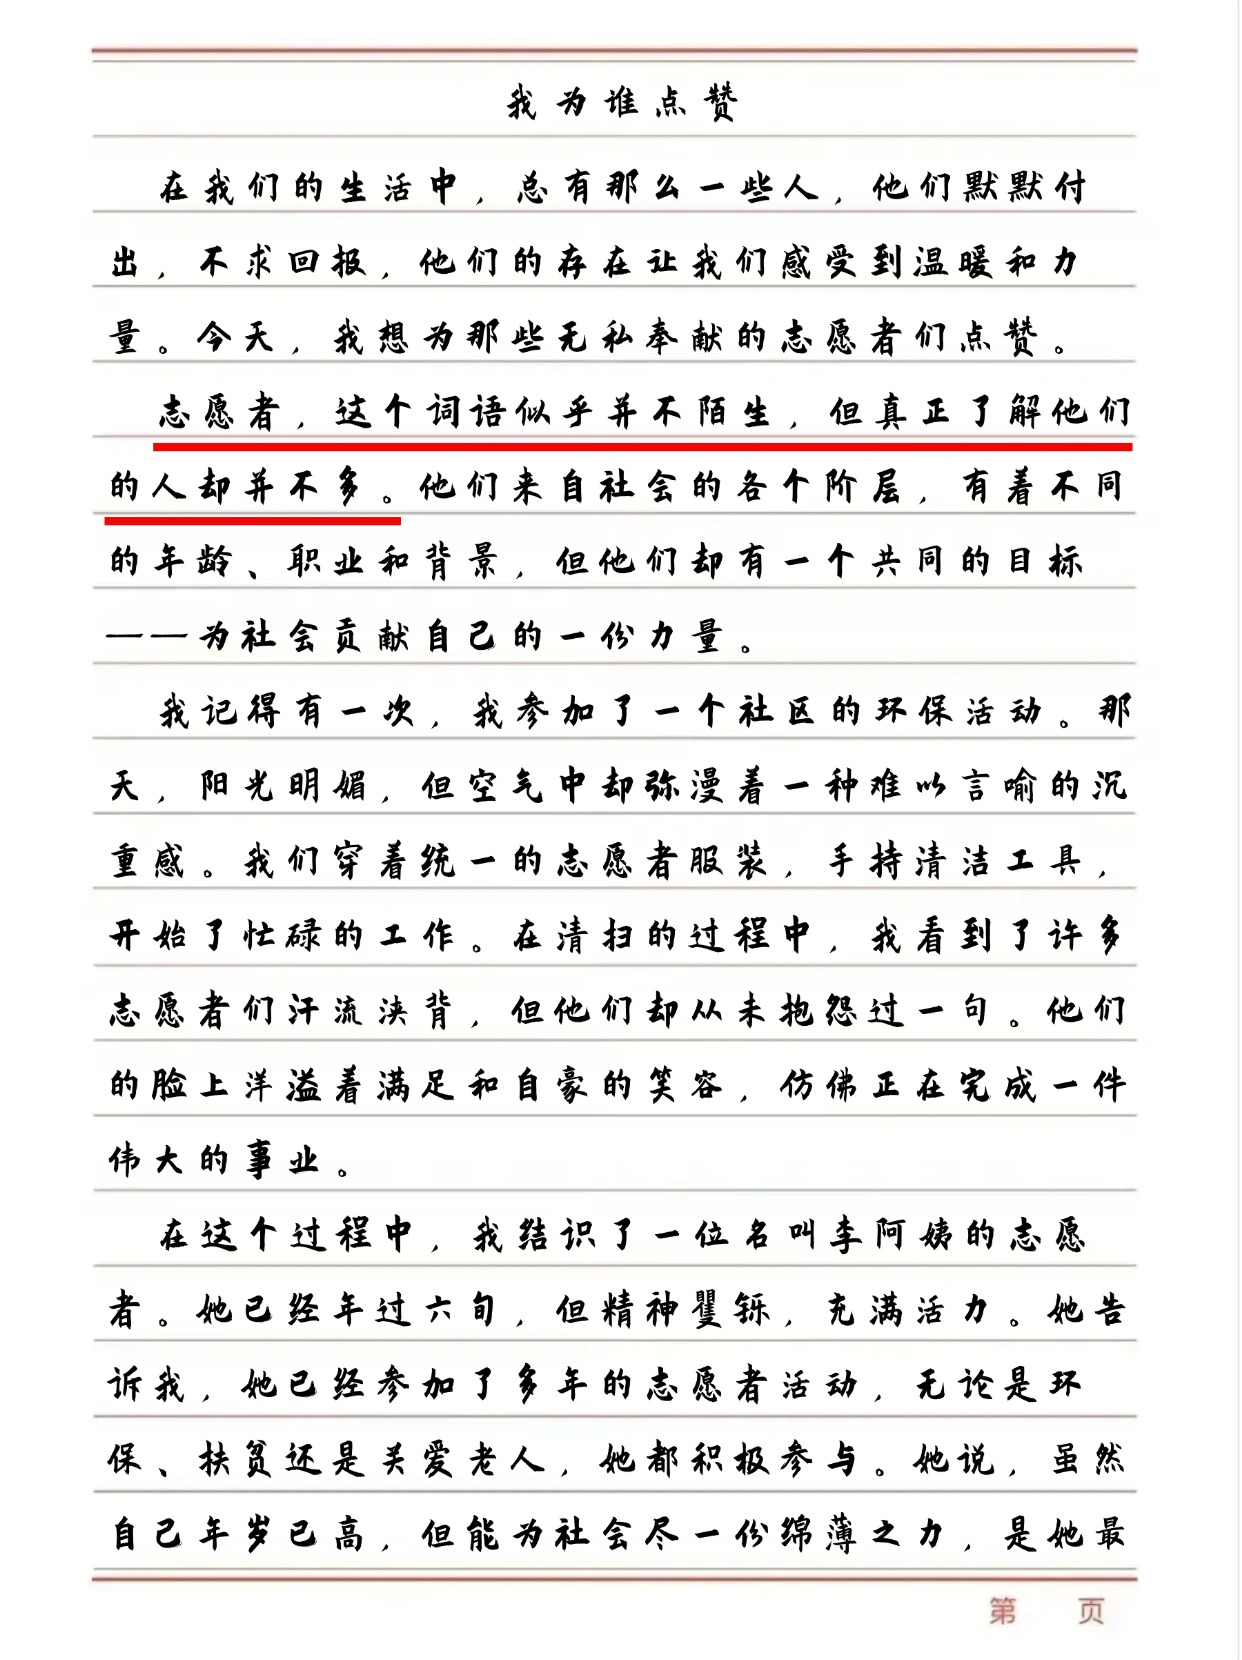 我为谁点赞
在我们的生活中，总有那么一些人，他们默默付
出，不求回报，他们的存在让我们感受到温暖和力
量。今天，我想为那些无私奉献的志愿者们点赞。
志愿者，这个词语似乎并不陌生，但真正了解他们
的人却并不多。他们来自社会的各个阶层，有着不同
的年龄、职业和背景，但他们却有一个共同的目标
——为社会贡献自己的一份力量。
我记得有一次，我参加了一个社区的环保活动。那
天，阳光明媚，但空气中却弥漫着一种难以言喻的沉
重感。我们穿着统一的志愿者服装，手持清洁工具，
开始了忙碌的工作。在清扫的过程中，我看到了许多
志愿者们汗流浃背，但他们却从未抱怨过一句。他们
的脸上洋溢着满足和自豪的笑容，仿佛正在完成一件
伟大的事业。
在这个过程中，我结识了一位名叫李阿姨的志愿
者。她已经年过六旬，但精神矍铄，充满活力。她告
诉我，她已经参加了多年的志愿者活动，无论是环
保、扶贫还是关爱老人，她都积极参与。她说，虽然
自己年岁已高，但能为社会尽一份绵薄之力，是她最
第 页